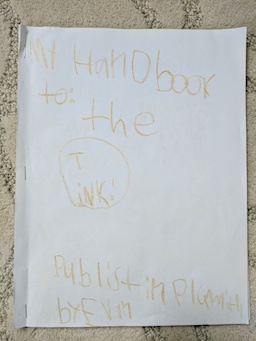 My HanDbook
to:
the
T
iNK!
Publist in Plymith
by Evin